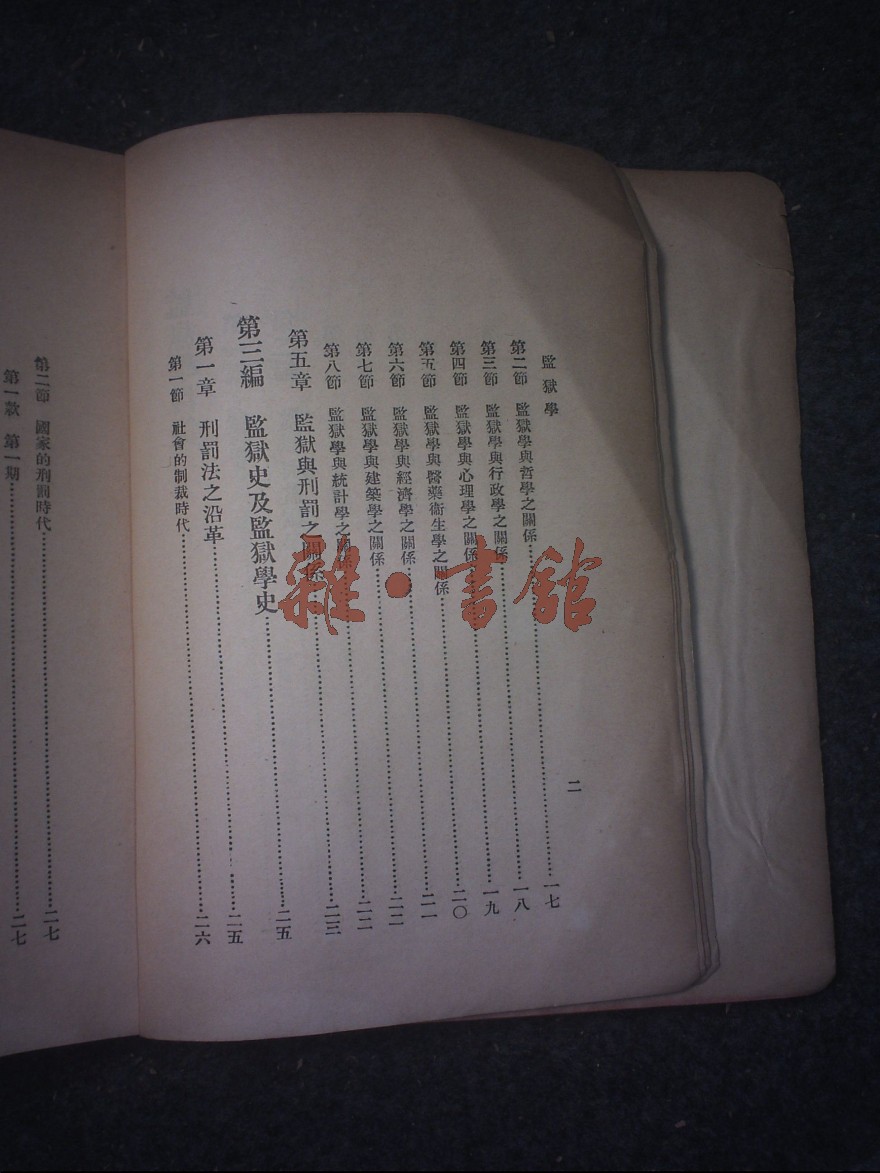 監獄學 二
第二節 監獄學與哲學之關係……一七
第三節 監獄學與行政學之關係……一八
第四節 監獄學與心理學之關係……一九
第五節 監獄學與醫藥衞生學之關係……二〇
第六節 監獄學與經濟學之關係……二一
第七節 監獄學與建築學之關係……二二
第八節 監獄學與統計學之關係……二二
第五章 監獄與刑罰之關係……二三
第三編 監獄史及監獄學史……二五
第一章 刑罰法之沿革……二五
第一節 社會的制裁時代……二六
第二節 國家的刑罰時代……二七
第一款 第一期……二七
雜·書館